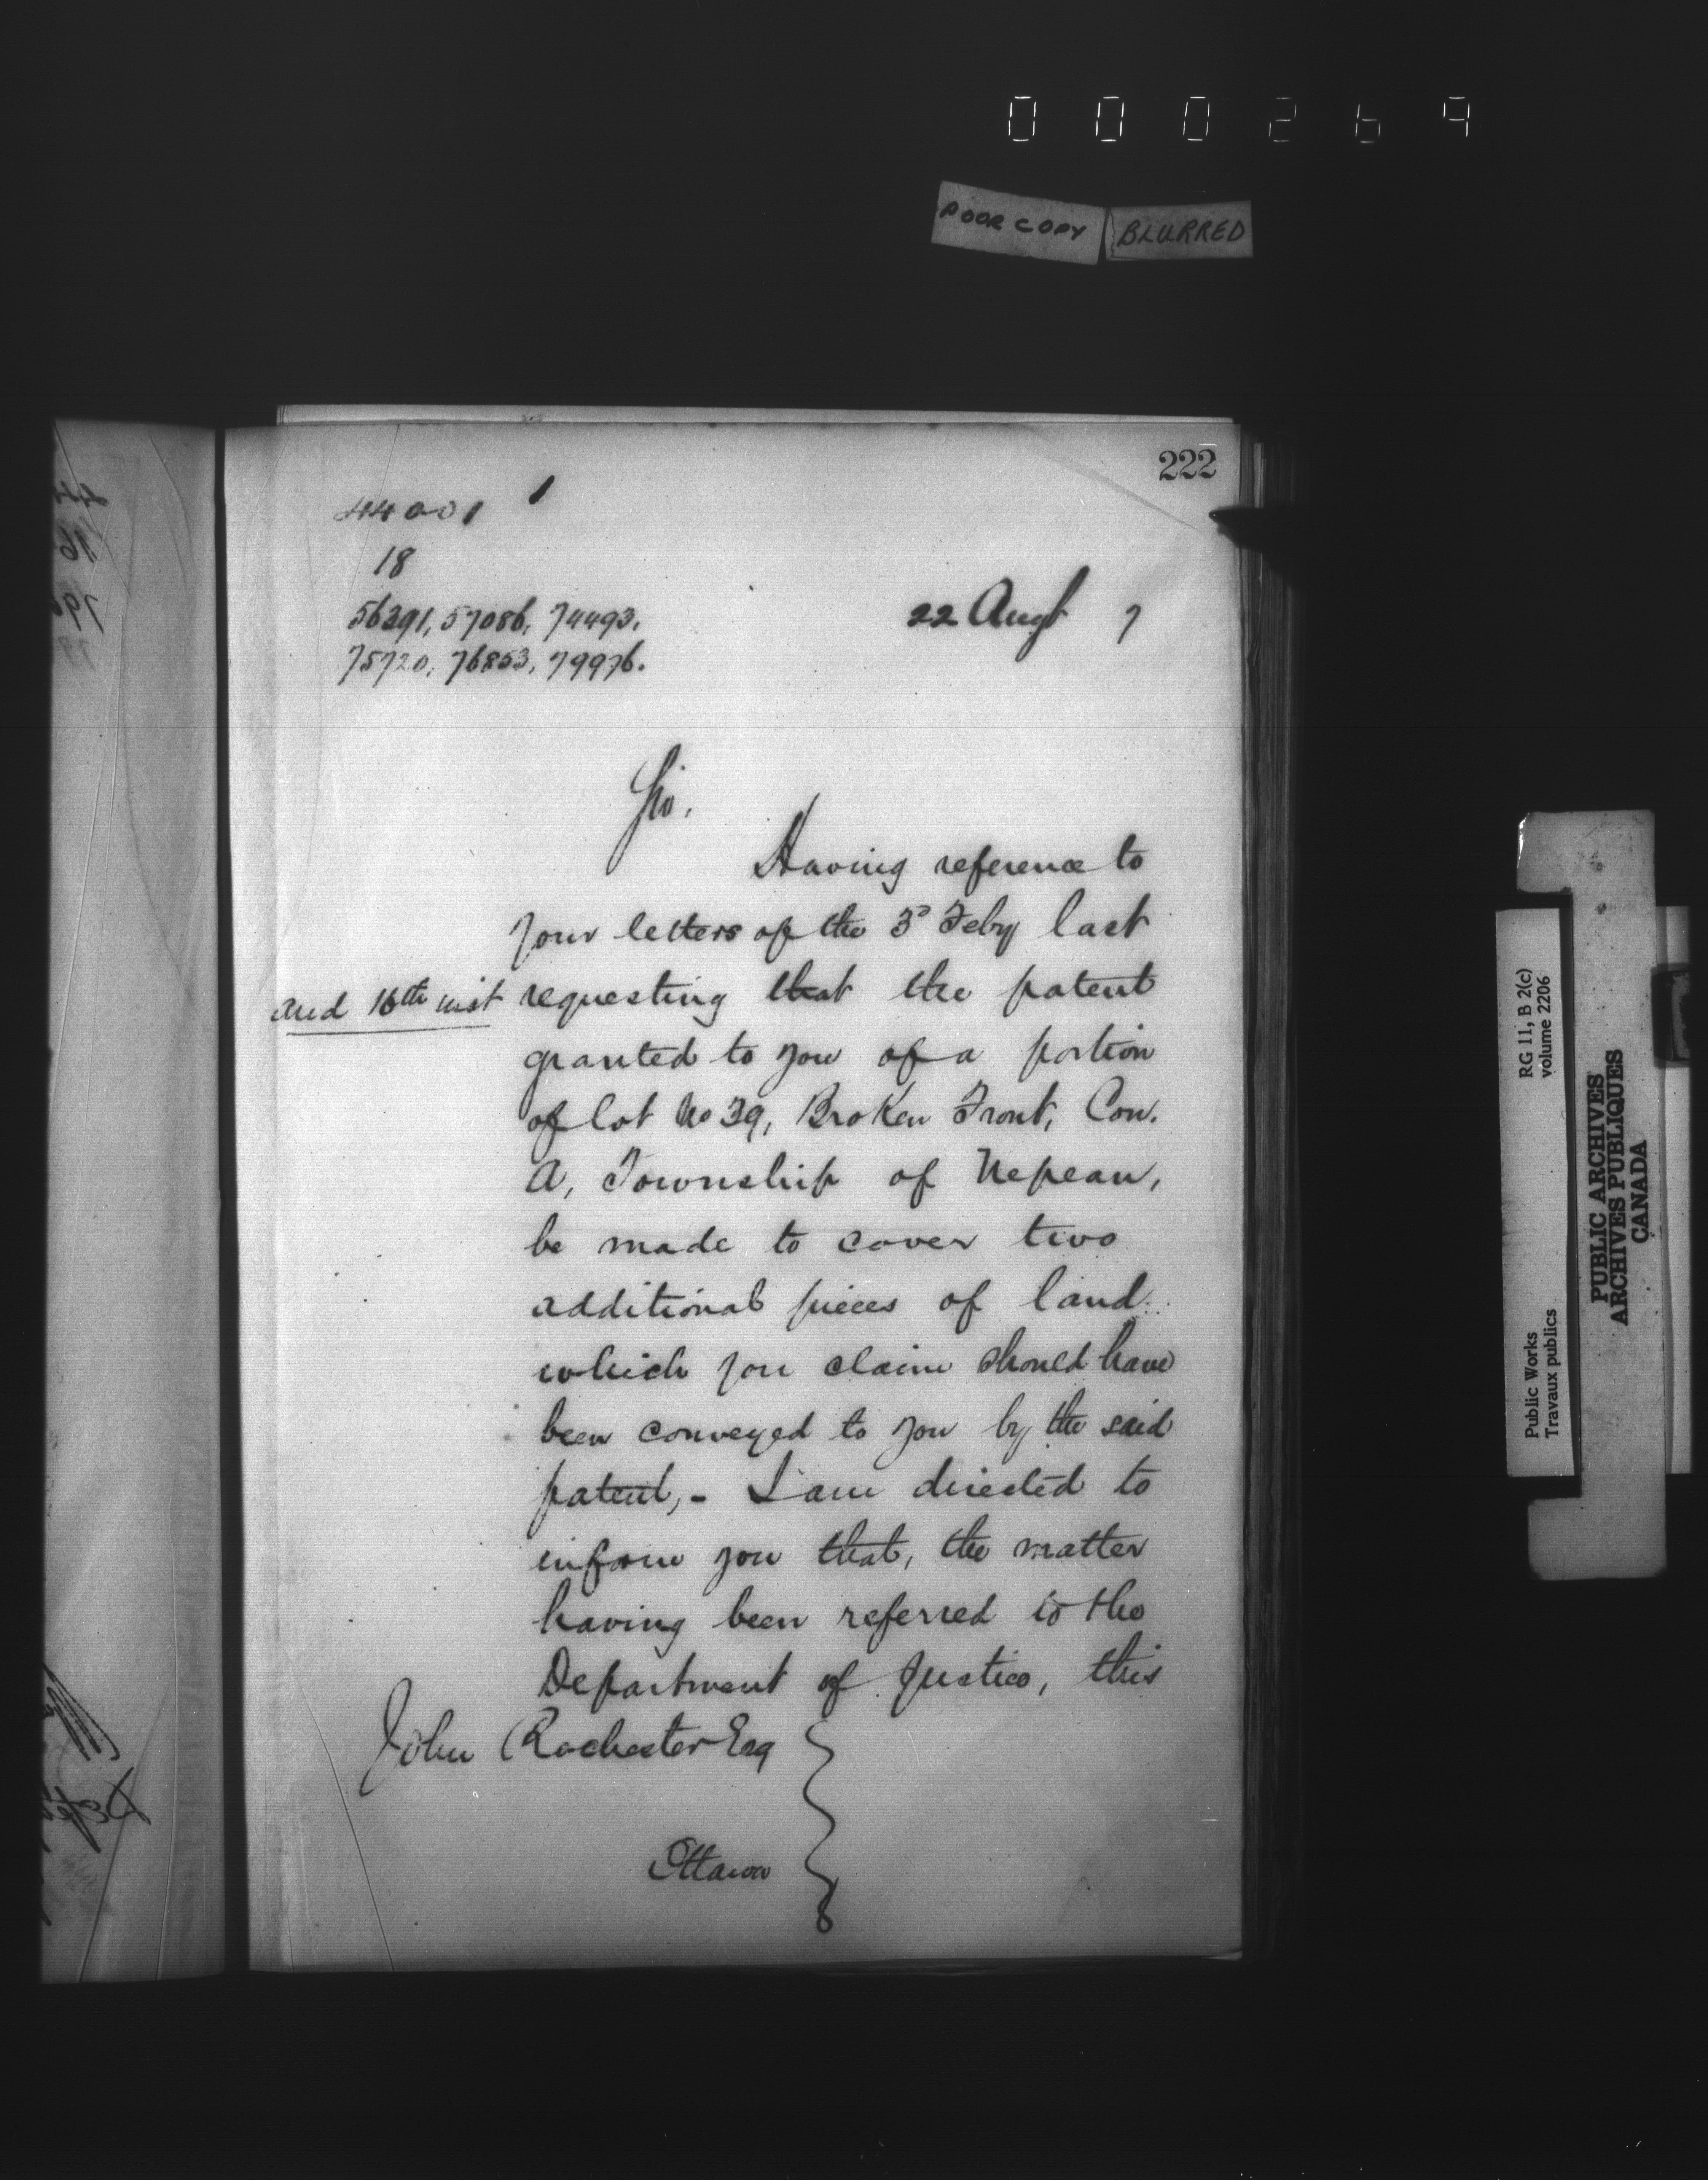 000269
POOR COPY BLURRED
222
44001
18
56391, 57086, 74493.
75720, 76853, 79976.
22 Augt 7
Sir,
Having reference to
your letters of the 3d Feby last
and 16th inst
requesting that the patent
granted to you of a portion
of lot No 39, Broken Front, Con.
A, Township of Nepean,
be made to cover two
additional pieces of land
which you claim should have
been conveyed to you by the said
patent,- I am directed to
inform you that, the matter
having been referred to the
Department of Justice, this
John Rochester Esq
Ottawa
Public Works
Travaux publics
RG 11, B 2(c)
volume 2206
PUBLIC ARCHIVES
ARCHIVES PUBLIQUES
CANADA